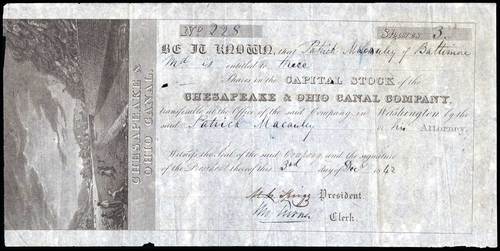 No 228 Shares 3
BE IT KNOWN, that Patrick Macauley of Baltimore
Md is entitled to three
Shares in the CAPITAL STOCK of the
CHESAPEAKE & OHIO CANAL COMPANY,
transferable at the Office of the said Company in Washington by the
said Patrick Macauley or his Attorney
Witness the Seal of the said Company and the signature
of the President thereof this 3rd day of Decr 1842
President.
Clerk.
CHESAPEAKE &
OHIO CANAL.